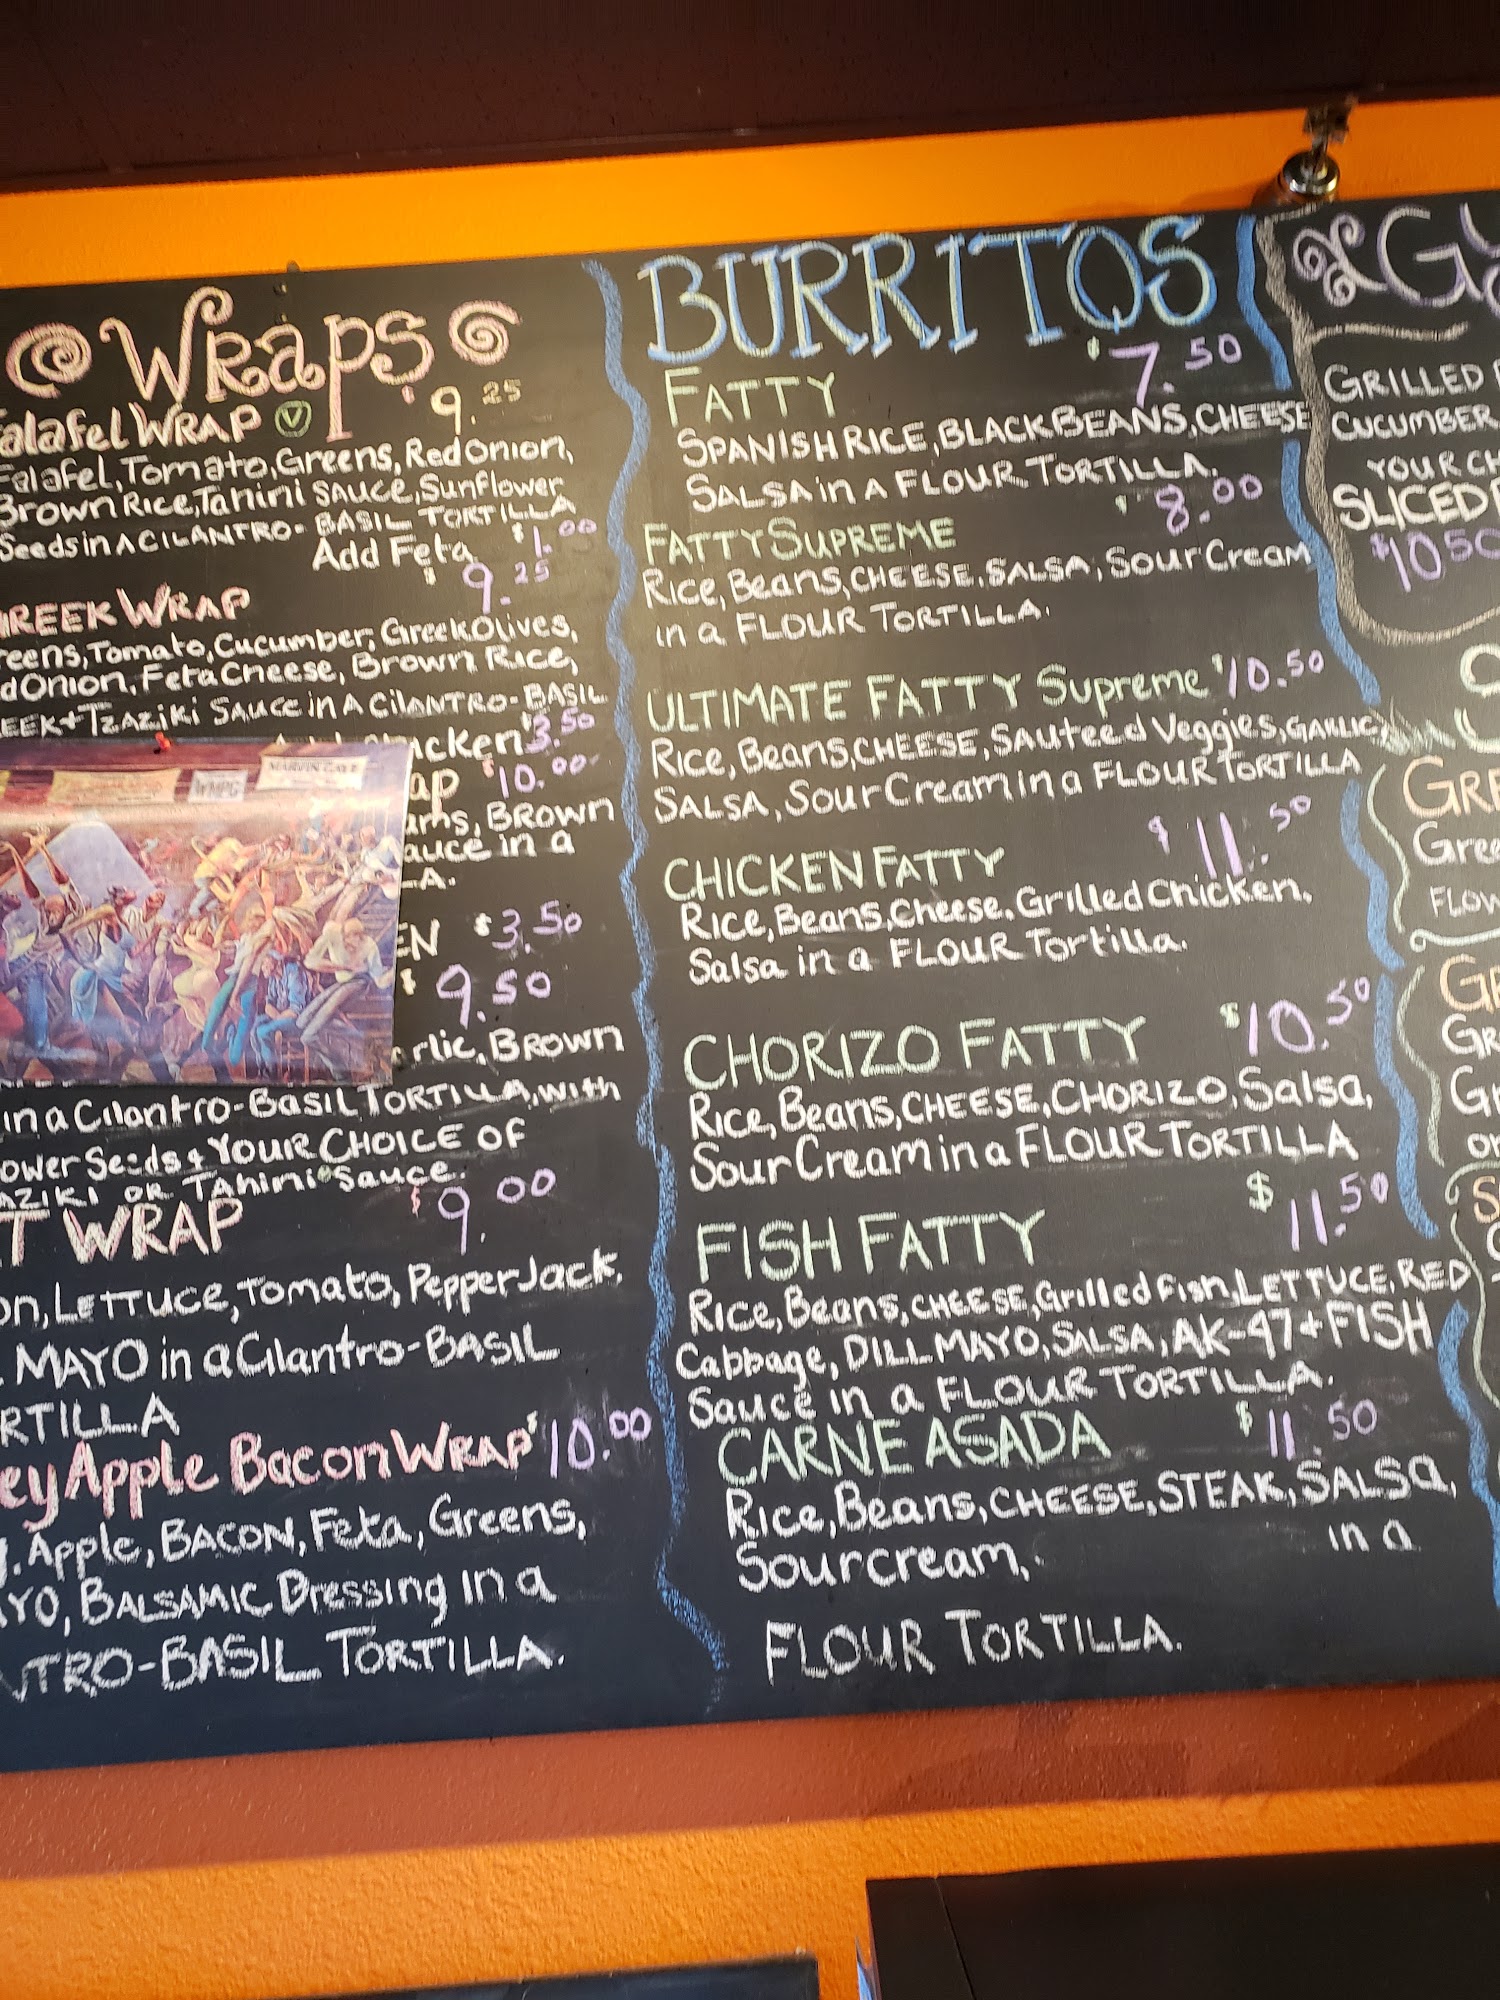 WRaps
alafel WRAP V $9.25
Falafel, Tomato, Greens, Red Onion,
Brown Rice, Tahini Sauce, Sunflower
Seeds in A CILANTRO-BASIL TORTILLA
Add Feta $1.00
REEK WRAP $9.25
reens, Tomato, Cucumber, Greek Olives,
d Onion, Feta Cheese, Brown Rice,
EEK + Tzaziki Sauce in A Cilantro-BASIL
icken $3.50
ap $10.00
ams, BROWN
auce in a
LA.
EN $3.50
$9.50
arlic, BROWN
in a Cilantro-Basil TORTILLA, with
ower Seeds + YOUR CHOICE OF
AZIKI OR TAhini Sauce.
T WRAP $9.00
on, Lettuce, Tomato, Pepper Jack,
MAYO in a Cilantro-BASIL
RTILLA
ey Apple Bacon WRAP $10.00
Apple, BACON, Feta, Greens,
AYO, BALSAMIC Dressing in a
NTRO-BASIL TORTILLA.
MARVIN GAYE
WMPG
BURRITOS
FATTY $7.50
SPANISH RICE, BLACK BEANS, CHEESE
SALSA in A FLOUR TORTILLA.
FATTY SUPREME $8.00
Rice, Beans, CHEESE, SALSA, Sour Cream
in a FLOUR TORTILLA.
ULTIMATE FATTY Supreme $10.50
Rice, Beans, CHEESE, SAuteed Veggies, GARLIC,
SALSA, Sour Cream in a FLOUR TORTILLA
CHICKEN FATTY $11.50
Rice, Beans, Cheese, Grilled Chicken,
Salsa in a FLOUR Tortilla.
CHORIZO FATTY $10.50
Rice, Beans, CHEESE, CHORIZO, Salsa,
Sour Cream in a FLOUR TORTILLA
FISH FATTY $11.50
Rice, Beans, CHEESE, Grilled Fish, LETTUCE, RED
Cabbage, DILL MAYO, SALSA, AK-47 + FISH
Sauce in a FLOUR TORTILLA.
CARNE ASADA $11.50
Rice, Beans, CHEESE, STEAK, SALSA,
Sour cream, in a
FLOUR TORTILLA.
GRILLED
CUCUMBER
YOUR CH
SLICED
$10.50
GRE
Gree
FLOW
GR
GR